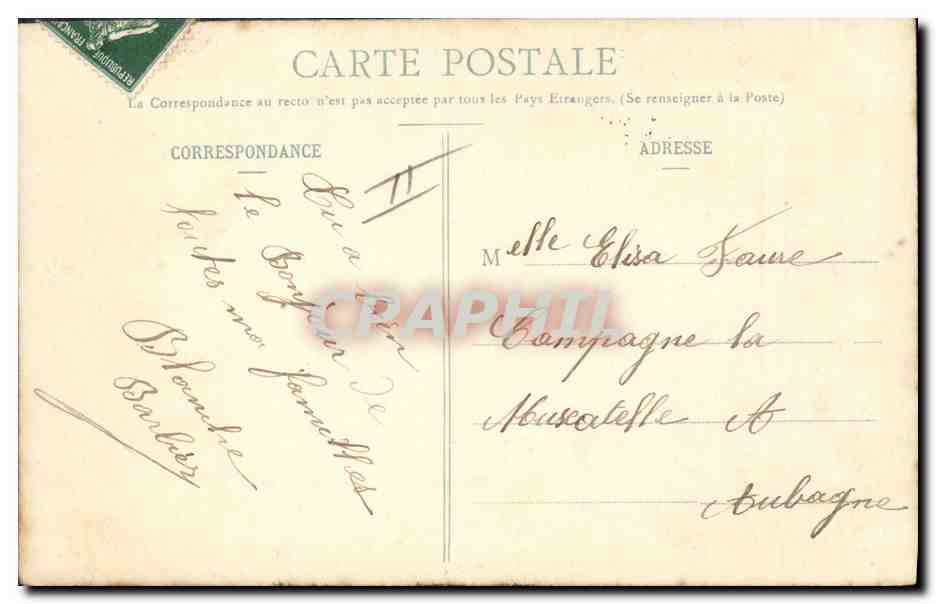 REPUBLIQUE FRANÇAISE
CARTE POSTALE
La Correspondance au recto n'est pas acceptée par tous les Pays Etrangers. (Se renseigner à la Poste)
CORRESPONDANCE
II
a bien
le Bonjour de
toutes ma familles
Blanche
Barbier
ADRESSE
Melle Elisa Faure
Campagne la
Muscatelle A
Aubagne
CRAPHIL